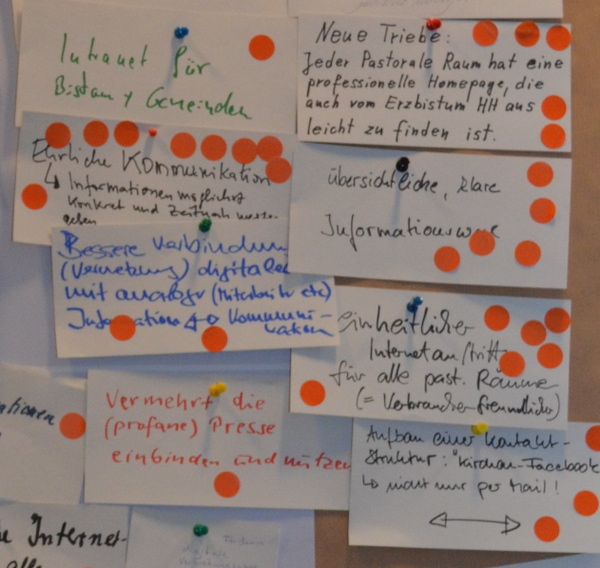 Intranet für
Bistum + Gemeinden
Neue Triebe:
Jeder Pastorale Raum hat eine
professionelle Homepage, die
auch vom Erzbistum HH aus
leicht zu finden ist.
Ehrliche Kommunikation
↳ Informationen möglichst
konkret und zeitnah
geben
übersichtliche, klare
Informationswege
Bessere Verbindung
(Vernetzung) digitaler
mit analoger (Mitarbeiter etc)
Information ↔ Kommuni-
kation
einheitlicher
Internetauftritt
für alle past. Räume
(= Verbraucherfreundlicher)
Vermehrt die
(profane) Presse
einbinden und nutzen
Aufbau einer Kontakt-
struktur: "Kirchen-Facebook
↳ nicht nur per Mail!
Internet-